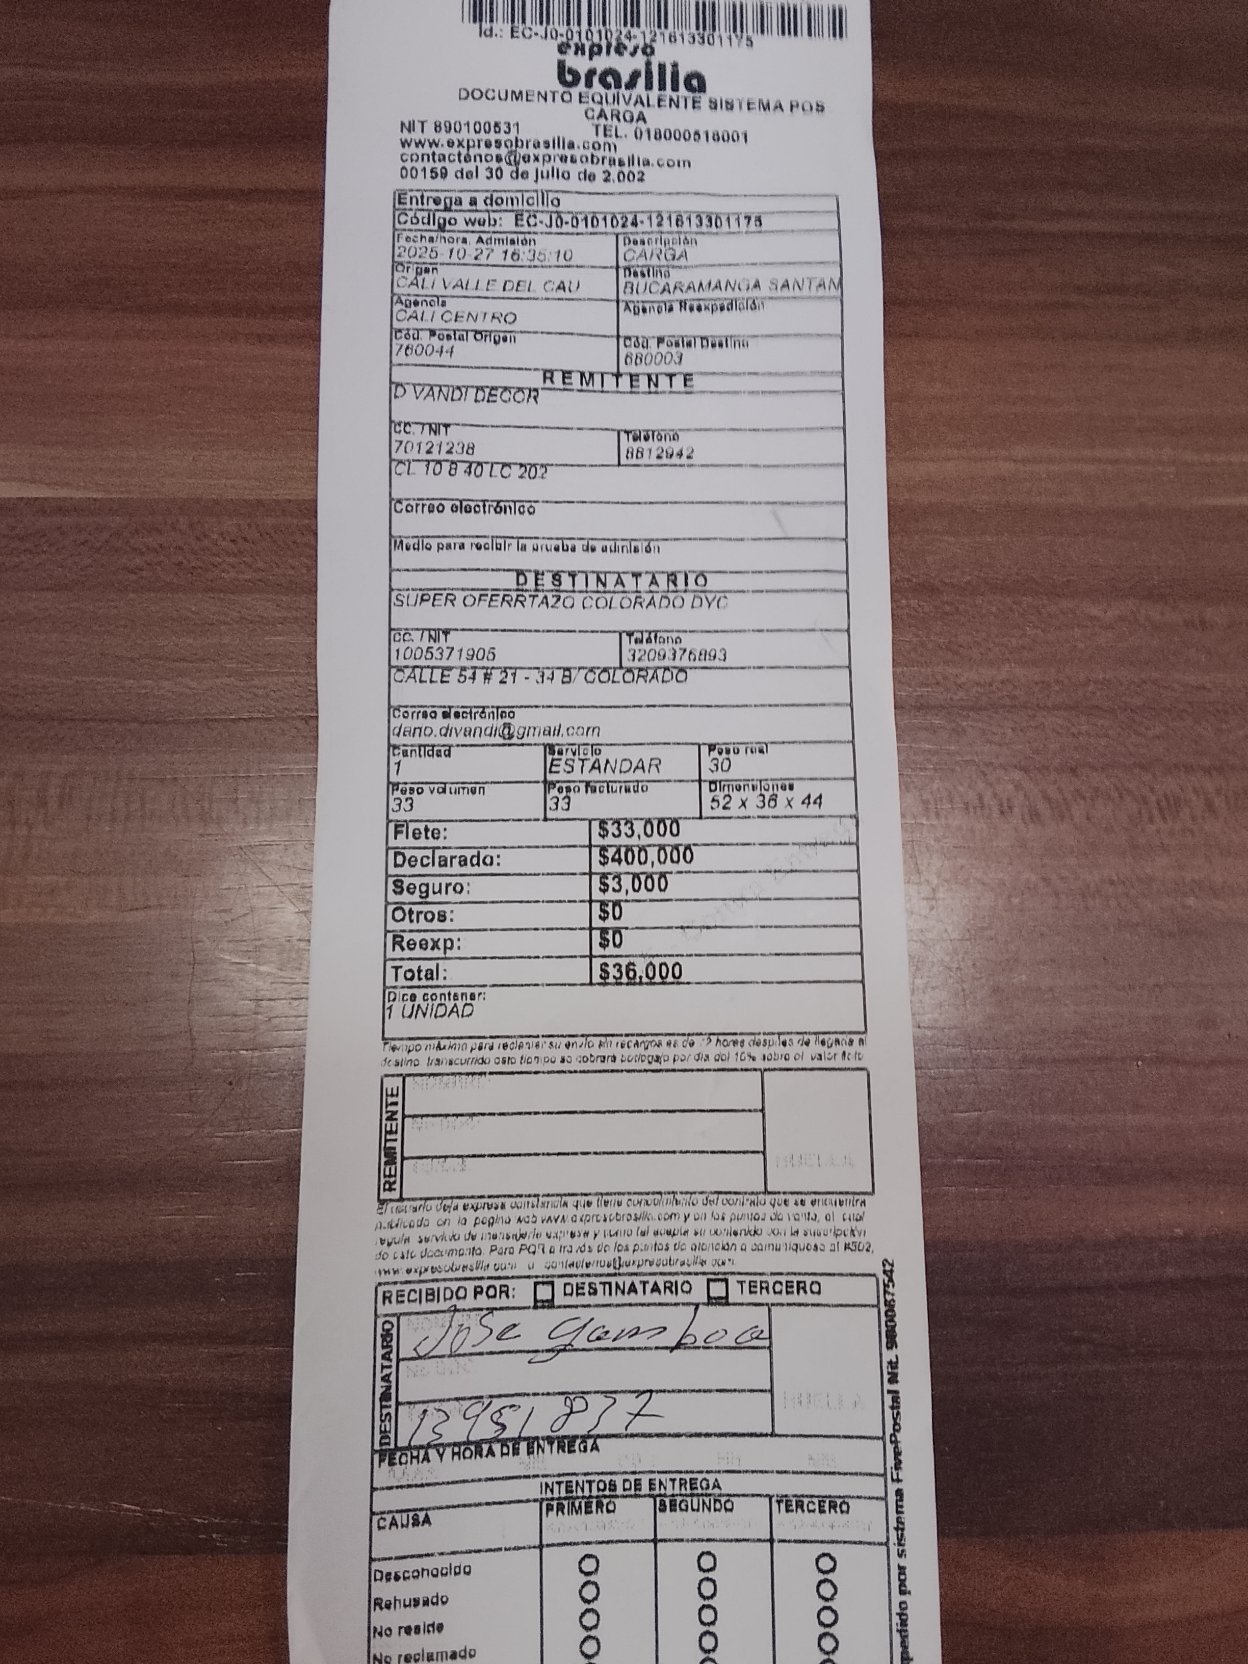 Id.: EC-J0-0101024-121613301175
expreso
brasilia
DOCUMENTO EQUIVALENTE SISTEMA POS
CARGA
NIT 890100531 TEL. 018000518001
www.expresobrasilia.com
contactenos@expresobrasilia.com
00159 del 30 de julio de 2.002
Entrega a domicilio
Código web: EC-J0-0101024-121613301175
Fecha/hora. Admisión Descripción
2025-10-27 16:35:10 CARGA
Origen Destino
CALI VALLE DEL CAU BUCARAMANGA SANTAN
Agencia Agencia Reexpedición
CALI CENTRO
Cód. Postal Origen Cód. Postal Destino
760044 680003
REMITENTE
D VANDI DECOR
CC. / NIT Teléfono
70121238 8812942
CL 10 8 40 LC 202
Correo electrónico
Medio para recibir la prueba de admisión
DESTINATARIO
SUPER OFERRTAZO COLORADO DYC
CC. / NIT Teléfono
1005371905 3209376893
CALLE 54 # 21 - 34 B/ COLORADO
Correo electrónico
dario.divandi@gmail.com
Cantidad Servicio Peso real
1 ESTANDAR 30
Peso volumen Peso facturado Dimensiones
33 33 52 x 36 x 44
Flete: $33,000
Declarado: $400,000
Seguro: $3,000
Otros: $0
Reexp: $0
Total: $36,000
Dice contener:
1 UNIDAD
Tiempo máximo para reclamar su envío sin recargos es de 72 horas después de llegada al
destino, transcurrido este tiempo se cobrará bodegaje por día del 10% sobre el valor flete
REMITENTE
HUELLA
El usuario deja expresa constancia que tiene conocimiento del contrato que se encuentra
publicado en la pagina web www.expresobrasilia.com y en los puntos de venta, el cual
regula servicio de mensajería expresa y como tal acepta su contenido con la suscripción
de este documento. Para PQR a través de los puntos de atención a comuníquese al #502,
www.expresobrasilia.com o contactenos@expresobrasilia.com.
RECIBIDO POR: DESTINATARIO TERCERO
DESTINATARIO
Jose gamboa
HUELLA
13951837
FECHA Y HORA DE ENTREGA
INTENTOS DE ENTREGA
CAUSA PRIMERO SEGUNDO TERCERO
Desconocido
Rehusado
No reside
No reclamado
pedido por sistema FivePostal Nit. 980067542